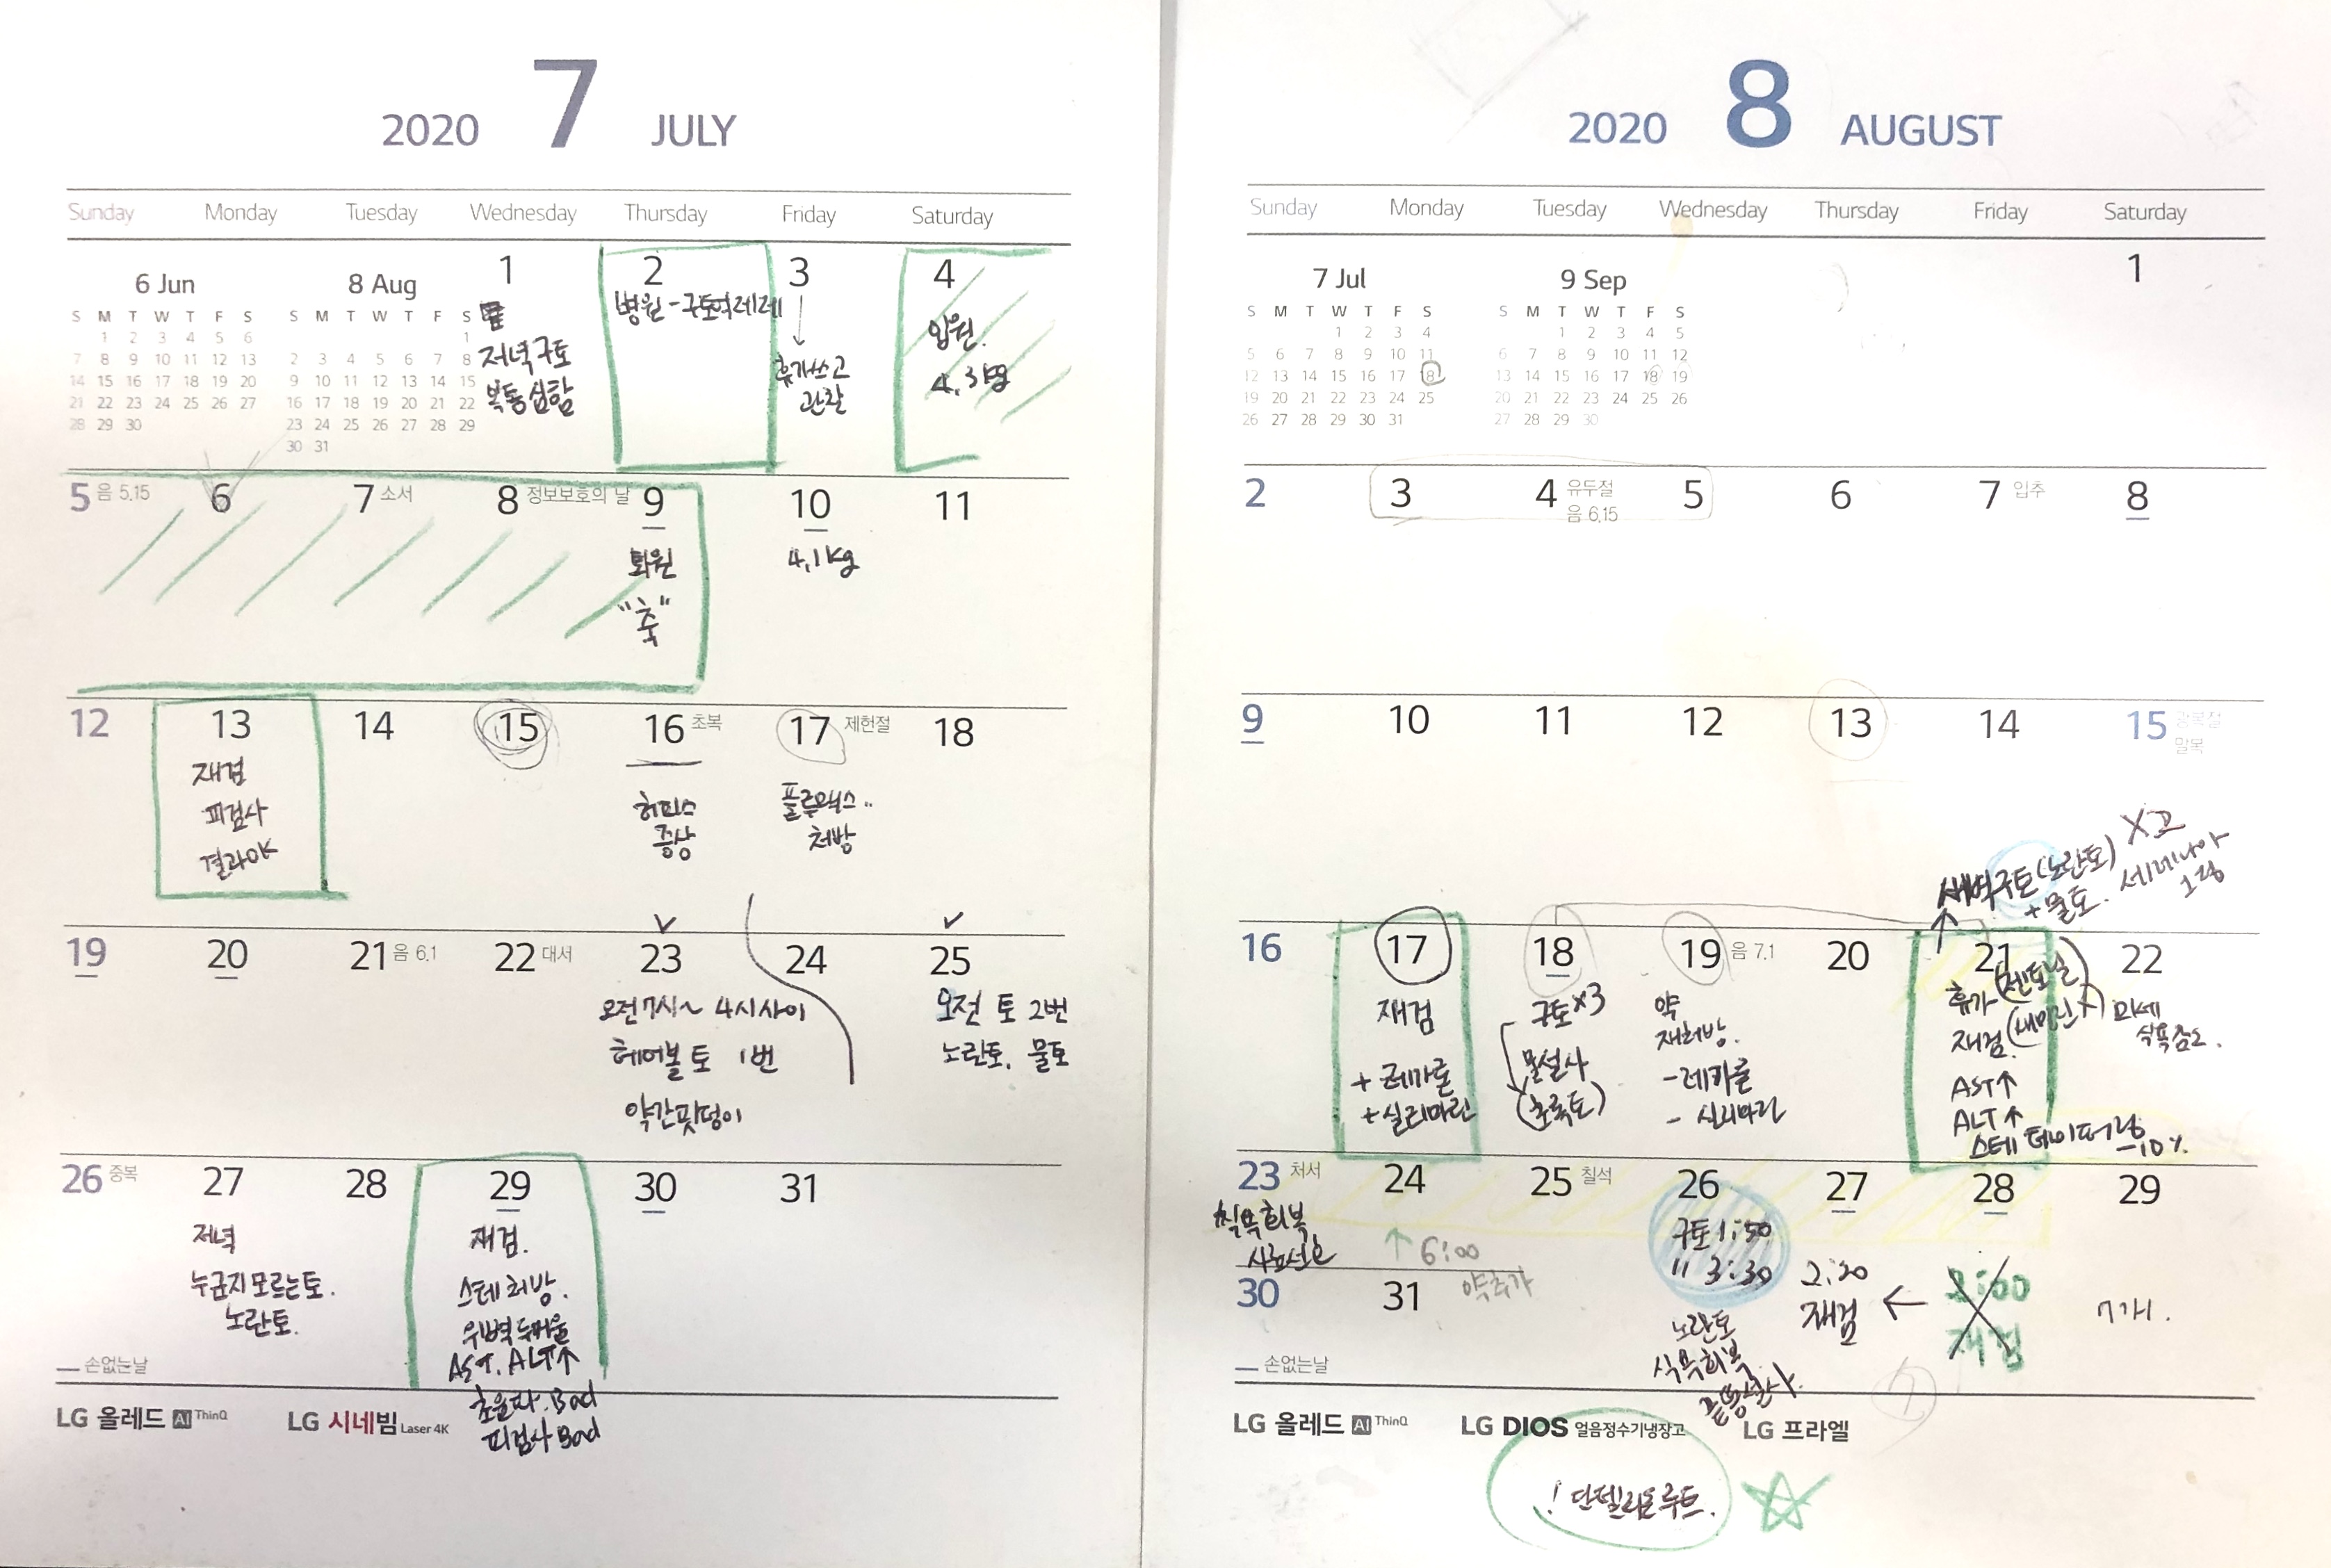 2020 7 JULY
Sunday Monday Tuesday Wednesday Thursday Friday Saturday
6 Jun
S M T W T F S
1 2 3 4 5 6
7 8 9 10 11 12 13
14 15 16 17 18 19 20
21 22 23 24 25 26 27
28 29 30
8 Aug
S M T W T F S
1
2 3 4 5 6 7 8
9 10 11 12 13 14 15
16 17 18 19 20 21 22
23 24 25 26 27 28 29
30 31
1
저녁구토
복통심함
2
병원-구토억제제
3
휴가쓰고
관찰
4
입원.
4.3kg
5 음 5.15
6
7 소서
8 정보보호의 날
9
퇴원
"축"
10
4.1kg
11
12
13
재검
피검사
결과OK
14
15
16 초복
허피스
증상
17 제헌절
플루맥스..
처방
18
19
20
21 음 6.1
22 대서
23
오전7시~ 4시사이
헤어볼토 1번
약간핏덩이
24
25
오전 토 2번
노란토, 물토
26 중복
27
저녁
누군지모르는토.
노란토.
28
29
재검.
스테처방.
위벽두꺼움
AST, ALT↑
초음파. Bad
피검사 Bad
30
31
손없는날
LG 올레드 AI ThinQ
LG 시네빔 Laser 4K
2020 8 AUGUST
Sunday Monday Tuesday Wednesday Thursday Friday Saturday
7 Jul
S M T W T F S
1 2 3 4
5 6 7 8 9 10 11
12 13 14 15 16 17 18
19 20 21 22 23 24 25
26 27 28 29 30 31
9 Sep
S M T W T F S
1 2 3 4 5
6 7 8 9 10 11 12
13 14 15 16 17 18 19
20 21 22 23 24 25 26
27 28 29 30
1
2
3
4 유두절
음 6.15
5
6
7 입추
8
9
10
11
12
13
14
15 광복절
말복
16
17
재검
+레카론
+실리마린
18
구토×3
물설사
(초록토)
19 음 7.1
약
재처방.
-레카론
-실리마린
20
새벽구토(노란토)
+물토. 세레니아
1정
21
휴가
재검.
AST↑
ALT↑
스테 테이퍼링
-10%
22
식욕감소.
23 처서
식욕회복
24
↑ 6:00
25 칠석
26
구토 1:50
〃 3:30
노란토
식욕회복
27
2:20
재검
←
28
재검
29
7개.
30
31
약추가
손없는날
LG 올레드 AI ThinQ
LG DIOS 얼음정수기냉장고
LG 프라엘
! 단델리온루트.